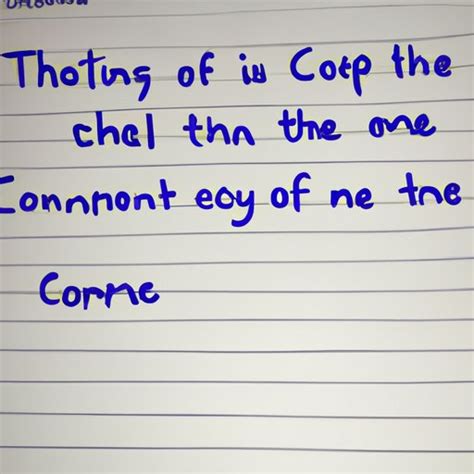 Thotung of iu Cotp the
chcl thn the one
Connpont eoy of ne tne
Corme